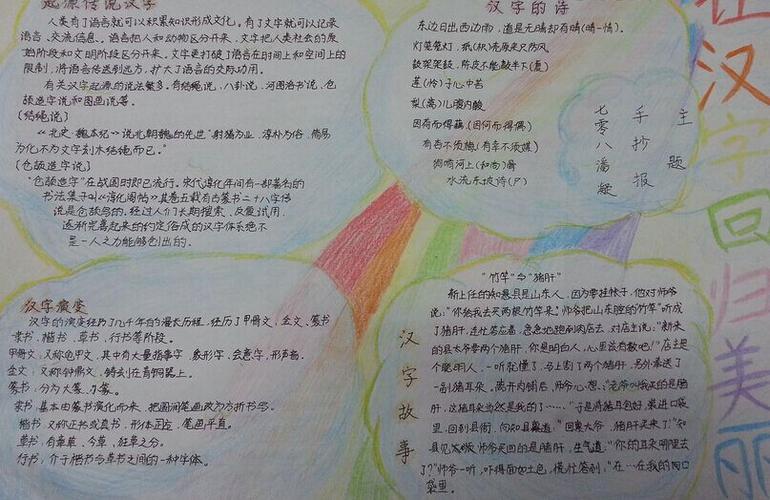 起源传说汉字
人类有了语言就可以积累知识形成文化。有了文字就可以记录
语言、交流信息。语言把人和动物区分开来，文字把人类社会的原
始阶段和文明阶段区分开来。文字更打破了语言在时间上和空间上的
限制，将语言传送到远方，扩大了语言的交际功用。
有关汉字起源的说法繁多。有结绳说，八卦说，河图洛书说，仓
颉造字说和图画说等。
〔结绳说〕
《北史·魏本纪》说北朝魏的先世“射猎为业，淳朴为俗，简易
为化不为文字刻木结绳而已。”
〔仓颉造字说〕
“仓颉造字”在战国时即已流行。宋代淳化年间有一部著名的
书法集子叫《淳化阁帖》其卷五载有古篆书二十八字传
说是仓颉写的，经过人们长期搜索、反复试用，
逐渐完善起来的约定俗成的汉字体系绝不
是一人之力能够创出的。
汉字的诗
东边日出西边雨，道是无晴却有晴(晴-情)。
灯笼笼灯，纸(枳)壳原来只防风
鼓架架鼓，陈皮不能敲半下(夏)
莲(怜)子心中苦
梨(离)儿腹内酸
因荷而得藕(因何而得偶)
有杏不须梅(有幸不须媒)
狗啃河上(和尚)骨
水流东坡诗(尸)
主题
手抄报
七零八潘凝
在汉字回归美丽
汉字演变
汉字的演变经历了几千年的漫长历程，经历了甲骨文，金文、篆书
隶书、楷书、草书、行书等阶段。
甲骨文：又称龟甲文，其中有大量指事字、象形字、会意字，形声字。
金文：又称钟鼎文，铸刻在青铜器上。
篆书：分为大篆、小篆。
隶书：基本由篆书演化而来，把圆润笔画改为方折书写。
楷书：又称正书或真书，形体正方，笔画平直。
草书：有章草，今草，狂草之分。
行书：介于楷书与草书之间的一种字体。
汉字故事
“竹竿”与“猪肝”
新上任的知县是山东人，因为要挂帐子，他对师爷
说：“你给我去买两根竹竿来。”师爷把山东腔的“竹竿”听成
了猪肝，连忙答应着，急急地跑到肉店去，对店主说：“新来
的县太爷要两个猪肝，你是明白人，心里该有数吧！”店主是
个聪明人，一听就懂了，马上割了两个猪肝，另外奉送了
一副猪耳朵。离开肉铺后，师爷心想：“老爷叫我买的是猪
肝，这猪耳朵当然是我的了……”于是将猪耳包好，装进口袋
里，回到县衙，向知县禀道：“回禀太爷，猪肝买来了！”知
县见师爷买回的是猪肝，生气道：“你的耳朵哪里去
了？”师爷一听，吓得面如土色，慌忙答到：“在…在我的口
袋里。